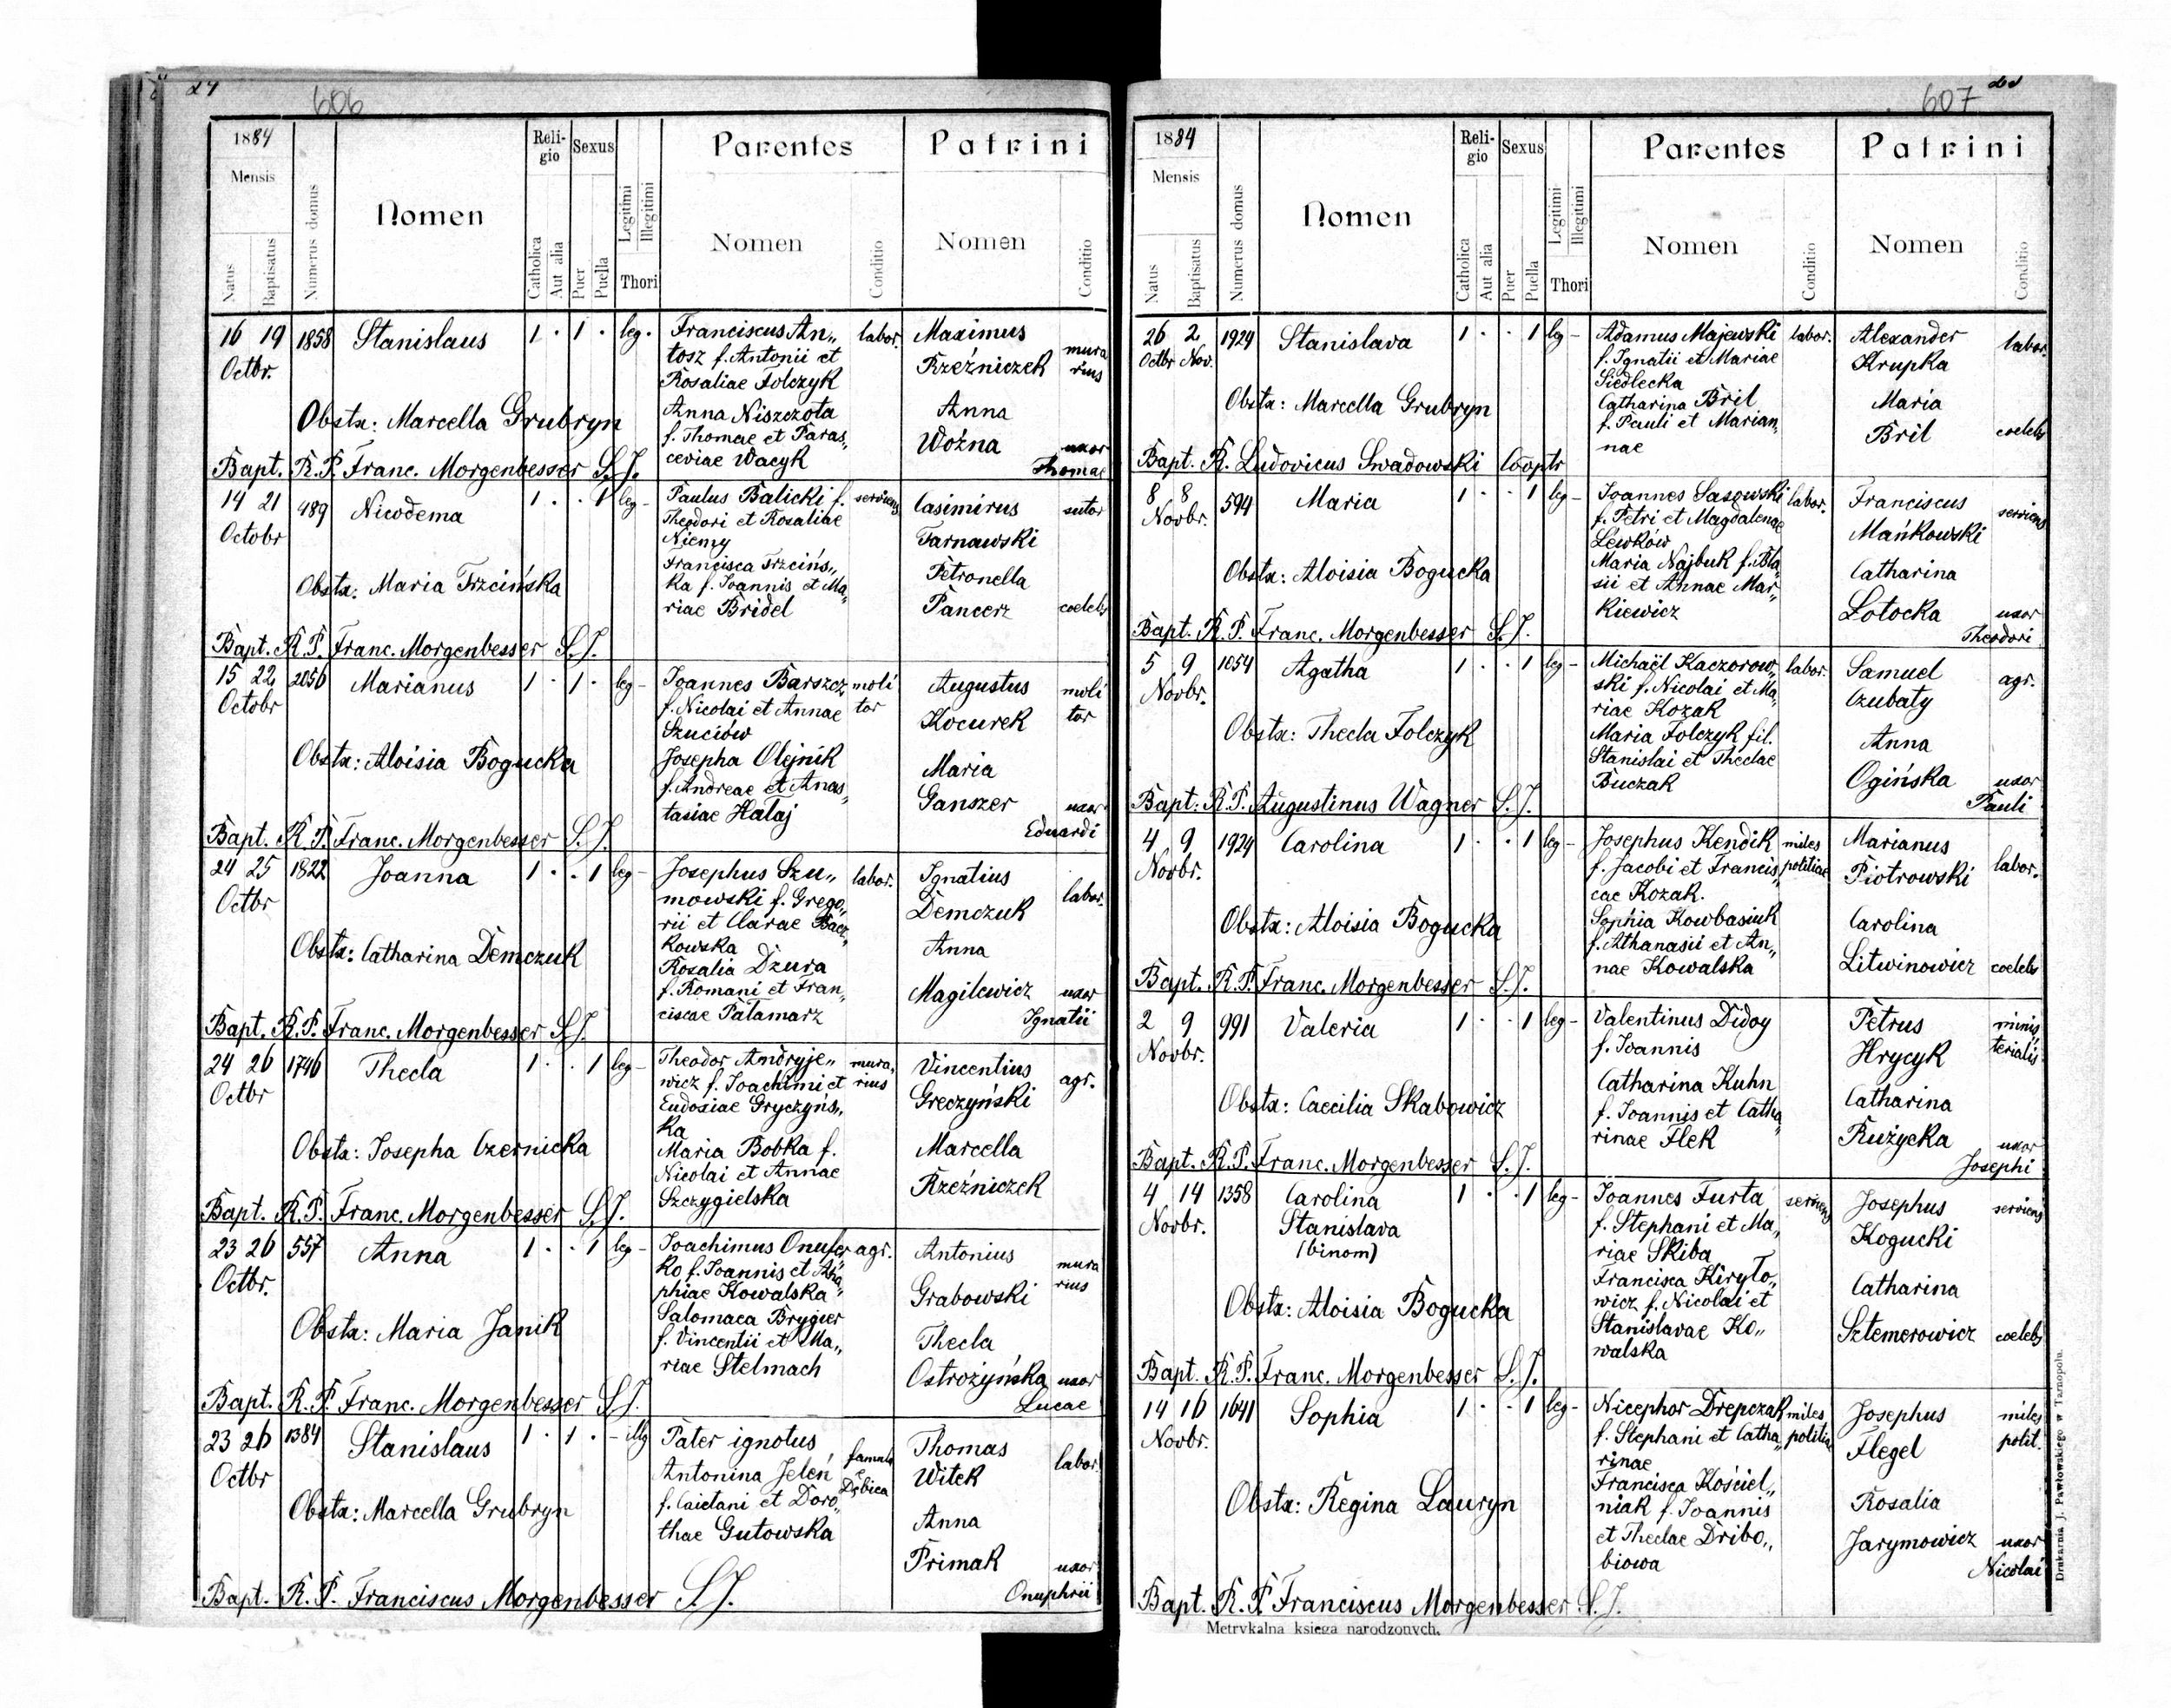 24
606
1884
Mensis
Natus
Baptisatus
Numerus domus
Nomen
Religio
Catholica
Aut alia
Sexus
Puer
Puella
Legitimi
Illegitimi
Thori
Parentes
Nomen
Conditio
Patrini
Nomen
Conditio
16 19 1858 Stanislaus 1 . 1 . leg. Franciscus An„ labor. Maximus mura
Octbr. tosz f. Antonii et Rzeźniczek rius
Rosaliae Tolczyk
Obstx: Marcella Grubryn Anna Niszczota Anna
f. Thomae et Paras„ Woźna uxor
Bapt. R. P. Franc. Morgenbesser S. J. ceviae Wacyk Thomae
14 21 489 Nicodema 1 . . 1 leg - Paulus Balicki f. serviens Casimirus sutor
Octobr Theodori et Rosaliae Tarnawski
Niemy
Obstx: Maria Trzcińska Francisca Trzcińs„ Petronella
ka f. Joannis et Ma„ Pancerz coelebs
riae Bridel
Bapt. R. P. Franc. Morgenbesser S. J.
15 22 2056 Marianus 1 . 1 . leg - Joannes Barszcz moli Augustus moli
Octobr f. Nicolai et Annae tor Kocurek tor
Szuciów
Obstx: Aloisia Bogucka Josepha Olejnik Maria
f. Andreae et Anas„ Ganszer uxor
tasiae Hałaj Eduardi
Bapt. R. P. Franc. Morgenbesser S. J.
24 25 1822 Joanna 1 . . 1 leg - Josephus Szu„ labor. Ignatius labor.
Octbr mowski f. Grego„ Demczuk
rii et Clarae Bacz„
Obstx: Catharina Demczuk kowska Anna
Rosalia Dzura
f. Romani et Fran„ Magilewicz uxor
Bapt. R. P. Franc. Morgenbesser S. J. ciscae Pałamarz Ignatii
24 26 1746 Thecla 1 . . 1 leg - Theodor Andryje„ mura„ Vincentius agr.
Octbr wicz f. Joachimi et rius Greczyński
Eudosiae Gryczyńs„
ka
Obstx: Josepha Czernicka Maria Bobka f. Marcella
Nicolai et Annae Rzeźniczek
Szczygielska
Bapt. R. P. Franc. Morgenbesser S. J.
23 26 557 Anna 1 . . 1 leg - Joachimus Onufer agr. Antonius mura
Octbr. ko f. Joannis et Aga„ Grabowski rius
phiae Kowalska
Obstx: Maria Janik Salomaea Brygier Thecla
f. Vincentii et Ma„
riae Stelmach Ostrożyńska uxor
Bapt. R. P. Franc. Morgenbesser S. J. Lucae
23 26 1384 Stanislaus 1 . 1 . - illg Pater ignotus Thomas labor.
Octbr Antonina Jeleń famula e Dębica Witek
Obstx: Marcella Grubryn f. Caietani et Doro„ Anna
thae Gutowska Primak uxor
Bapt. R. P. Franciscus Morgenbesser S. J. Onuphrii
607
1884
Mensis
Natus
Baptisatus
Numerus domus
Nomen
Religio
Catholica
Aut alia
Sexus
Puer
Puella
Legitimi
Illegitimi
Thori
Parentes
Nomen
Conditio
Patrini
Nomen
Conditio
26 2 1924 Stanislava 1 . . 1 leg - Adamus Majewski labor. Alexander labor.
Octbr Nov. f. Ignatii et Mariae Krupka
Siedlecka
Obstx: Marcella Grubryn Catharina Bril Maria
f. Pauli et Marian„ Bril coelebs
nae
Bapt. R. Ludovicus Swadowski Cooptr
8 8 594 Maria 1 . . 1 leg - Joannes Sasowski labor. Franciscus serviens
Novbr. f. Petri et Magdalenae Mańkowski
Lewków
Obstx: Aloisia Bogucka Maria Najbuk f. Bla„ Catharina
sii et Annae Mar„
kiewicz Łotocka uxor
Bapt. R. P. Franc. Morgenbesser S. J. Theodori
5 9 1054 Agatha 1 . . 1 leg - Michaël Kaczorow„ labor. Samuel agr.
Novbr. ski f. Nicolai et Ma„ Czubaty
riae Kozak
Obstx: Thecla Tolczyk Maria Tolczyk fil. Anna
Stanislai et Theclae
Buczak Ogińska uxor
Bapt: R. P. Augustinus Wagner S. J. Pauli
4 9 1924 Carolina 1 . . 1 leg - Josephus Kendik miles Marianus labor.
Novbr. f. Jacobi et Francis„ politiae Piotrowski
cae Kozak.
Obstx: Aloisia Bogucka Sophia Kowbasiuk Carolina
f. Athanasii et An„
nae Kowalska Litwinowicz coelebs
Bapt. R. P. Franc. Morgenbesser S. J.
2 9 991 Valeria 1 . . 1 leg - Valentinus Didoy Petrus minis„
Novbr. f. Joannis Hrycyk terialis
Obstx: Caecilia Skabowicz Catharina Kuhn Catharina
f. Joannis et Catha„
rinae Flek Rużycka uxor
Bapt. R. P. Franc. Morgenbesser S. J. Josephi
4 14 1358 Carolina 1 . . 1 leg - Joannes Furta serviens Josephus serviens
Novbr. Stanislava f. Stephani et Ma„ Kogucki
(binom) riae Skiba
Francisca Kiryło„ Catharina
Obstx: Aloisia Bogucka wicz f. Nicolai et
Stanislavae Ko„ Sztemerowicz coelebs
walska
Bapt. R. P. Franc. Morgenbesser S. J.
14 16 1641 Sophia 1 . . 1 leg - Nicephor Drepczak miles Josephus miles
Novbr. f. Stephani et Catha„ politiae Flegel polit.
rinae
Francisca Kościel„ Rosalia
Obstx: Regina Lauryn niak f. Joannis
et Theclae Dribo„ Jarymowicz uxor
biowa Nicolai
Bapt. R. P. Franciscus Morgenbesser S. J.
Metrykalna księga narodzonych.
Drukarnia J. Pawłowskiego w Tarnopolu.